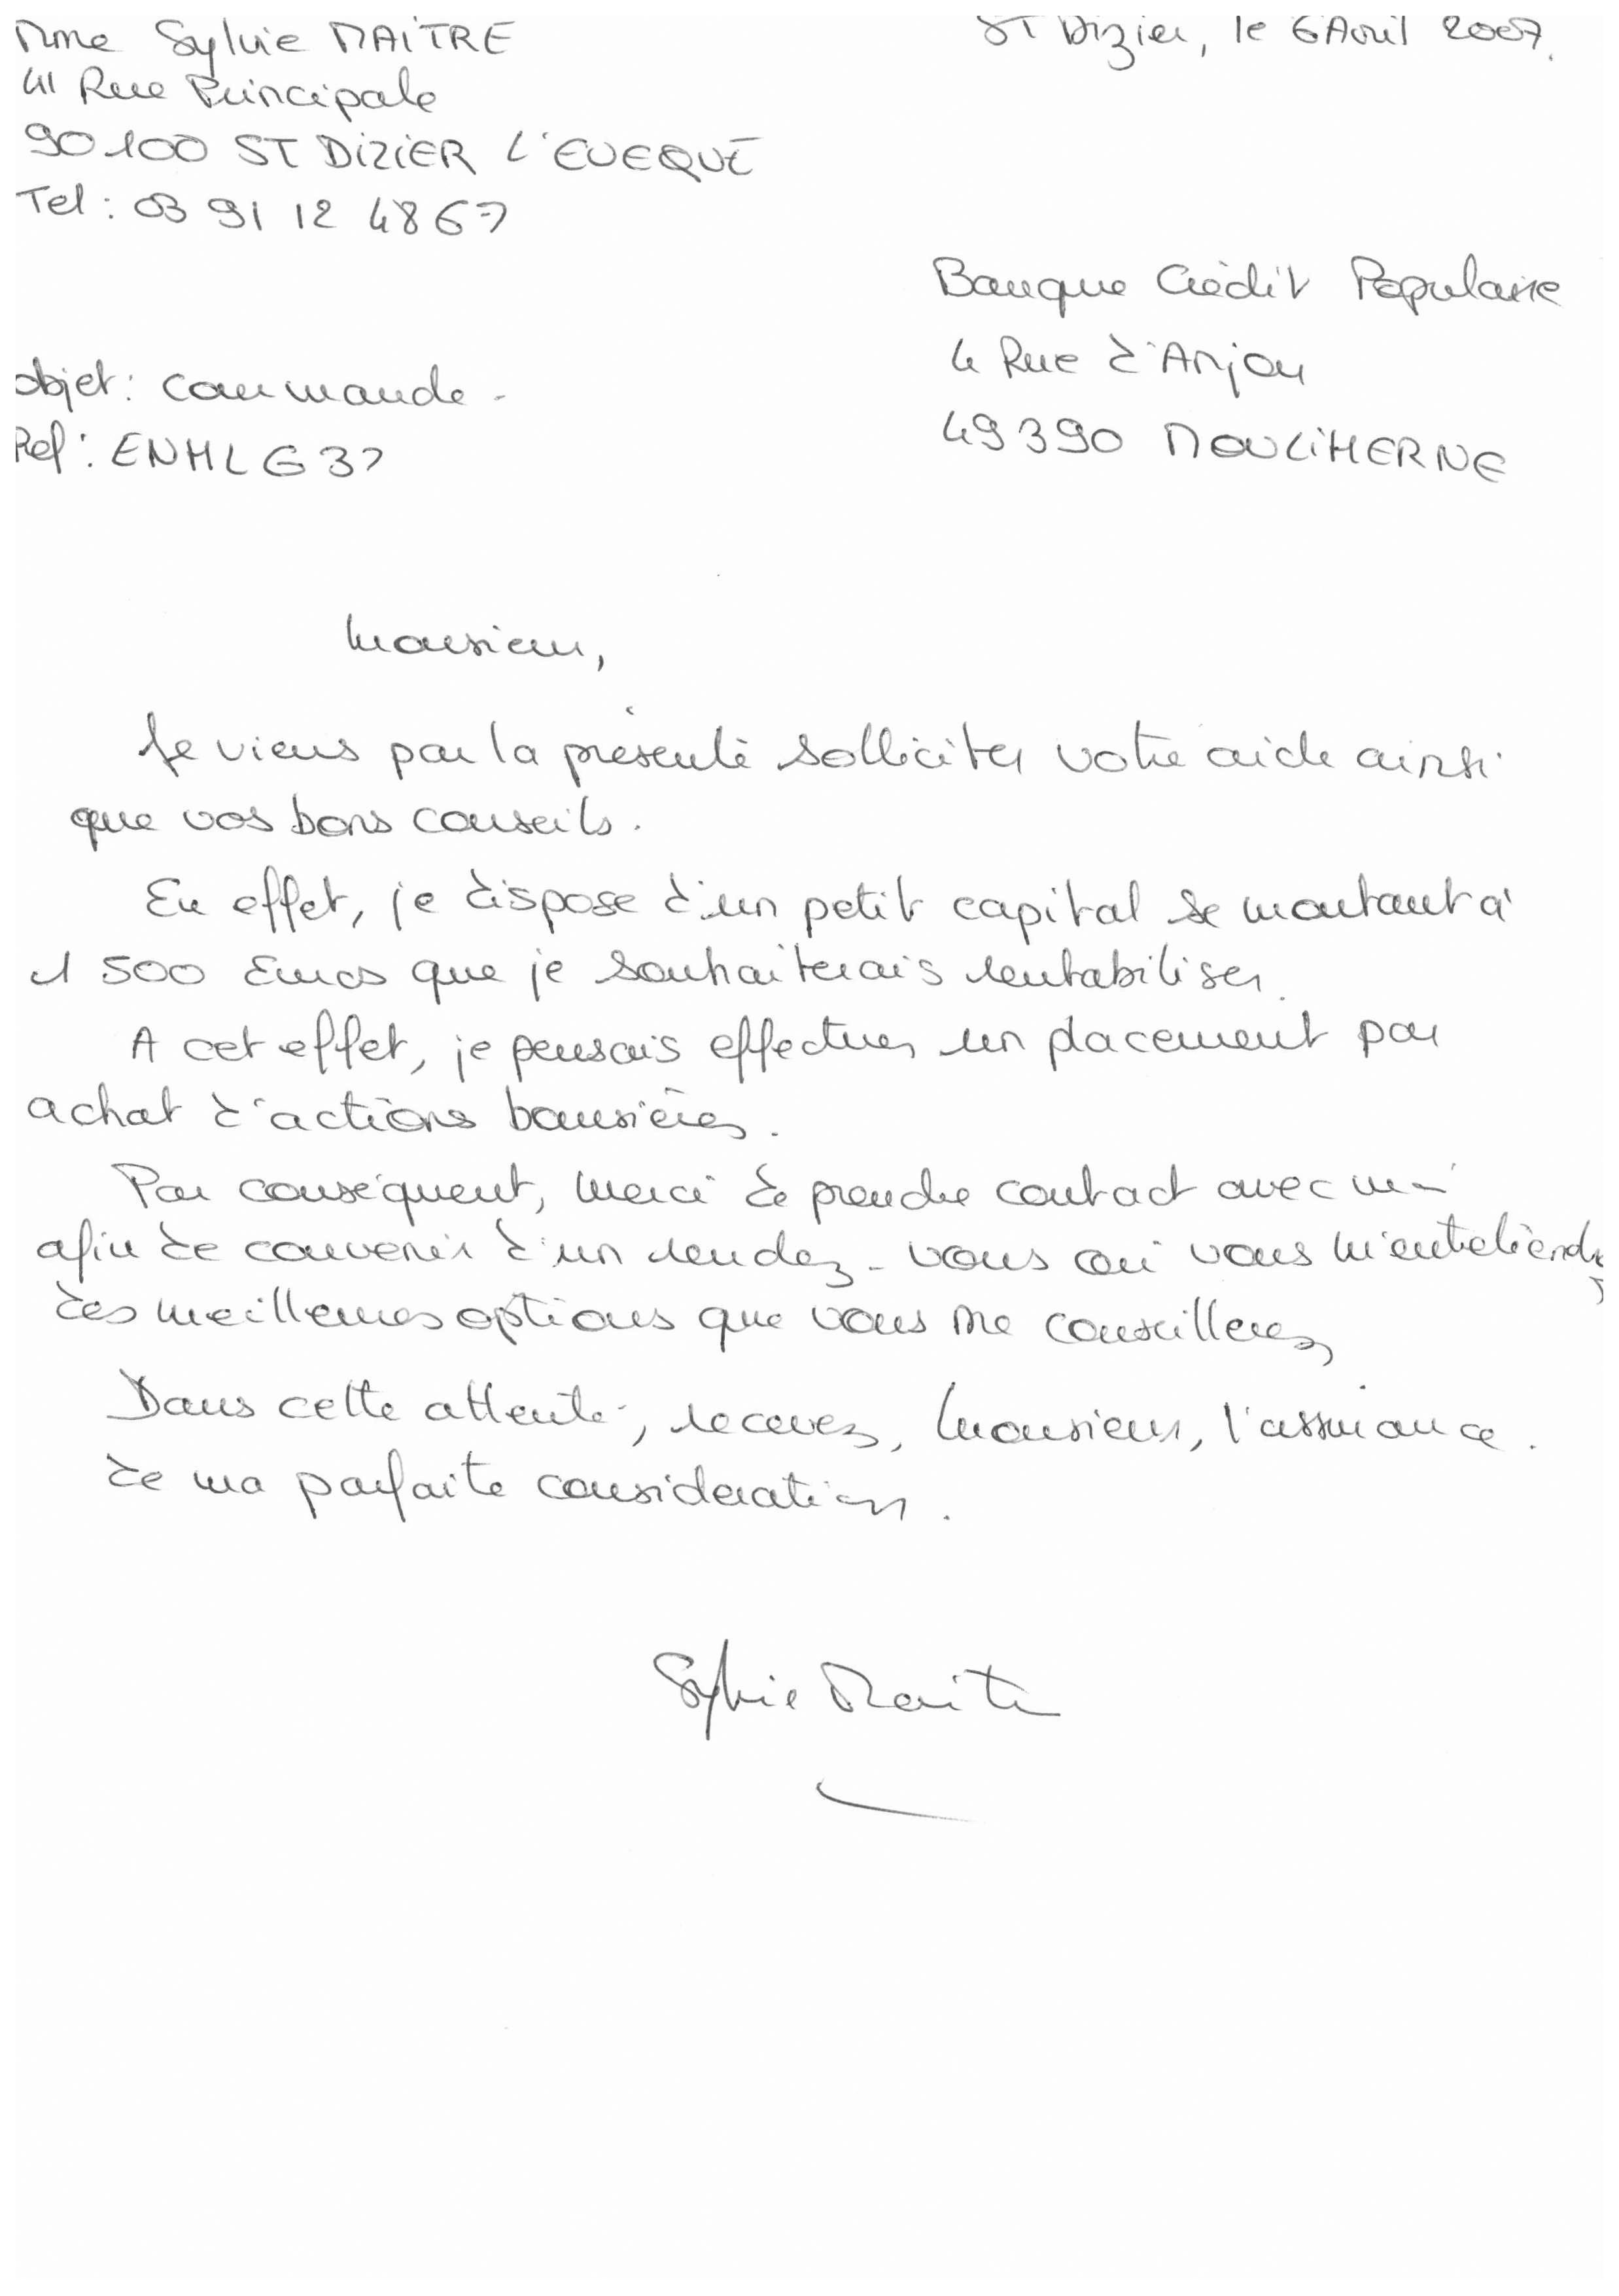 Mme Sylvie MAITRE
St Dizier, le 6 Avril 2007.
41 Rue Principale
90100 ST DIZIER L'EVEQUE
Tel : 03 91 12 48 67
Banque Crédit Populaire
4 Rue d'Anjou
49390 MOULIHERNE
objet : commande.
Ref : ENHLG37
Monsieur,
Je viens par la présente solliciter votre aide ainsi
que vos bons conseils.
En effet, je dispose d'un petit capital se montant à
1 500 Euros que je souhaiterais rentabiliser.
A cet effet, je pensais effectuer un placement par
achat d'actions boursières.
Par conséquent, merci de prendre contact avec moi
afin de convenir d'un rendez-vous où vous m'entretiendrez
des meilleures options que vous me conseillerez
Dans cette attente, recevez, Monsieur, l'assurance
de ma parfaite consideration.
Sylvie Maitre